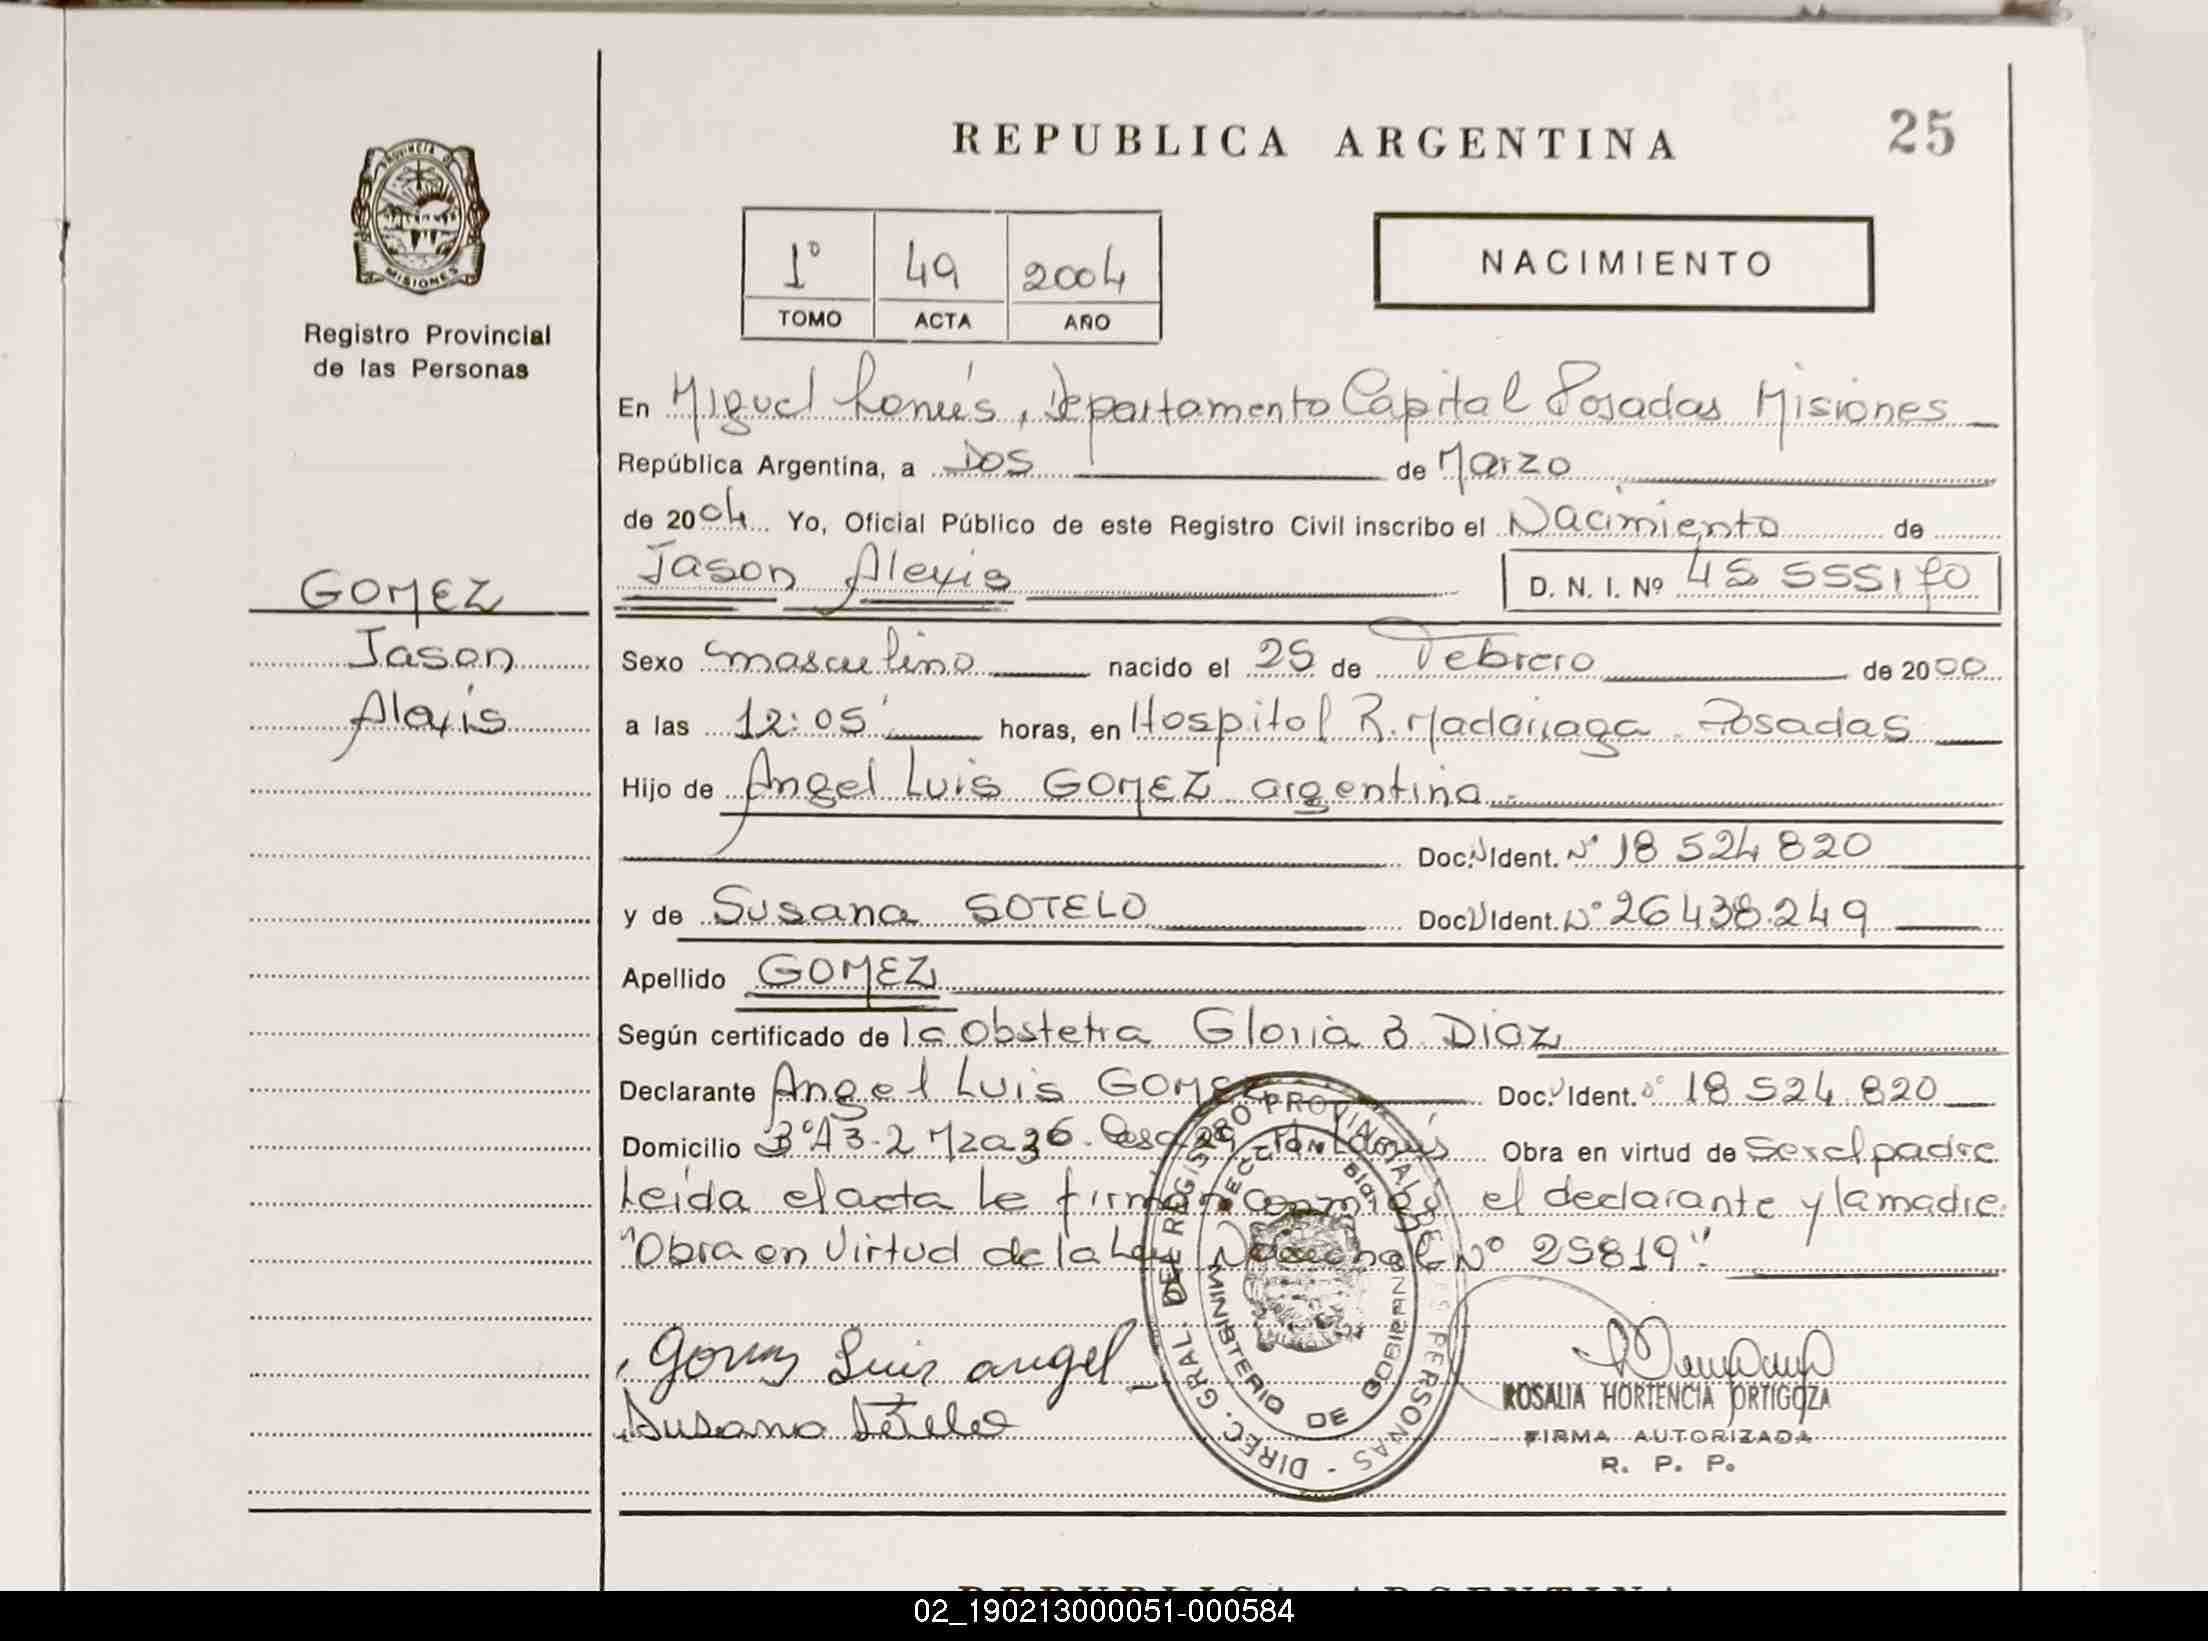 REPUBLICA ARGENTINA
25
PROVINCIA DE
MISIONES
Registro Provincial
de las Personas
1º 49 2004
TOMO ACTA AÑO
NACIMIENTO
En Miguel Lanús, Departamento Capital Posadas Misiones
República Argentina, a Dos de Marzo
de 2004 Yo, Oficial Público de este Registro Civil inscribo el Nacimiento de
GOMEZ
Jason Alexis D. N. I. Nº
Jason
Alexis
Sexo masculino nacido el 25 de Febrero de 2000
a las 12:05' horas, en Hospital R. Madariaga. Posadas
Hijo de Angel Luis GOMEZ argentina
Doc. Ident. Nº 18 524 820
y de Susana SOTELO Doc. Ident. Nº 26438.249
Apellido GOMEZ
Según certificado de la Obstetra Gloria B. Diaz
Declarante Angel Luis GOMEZ Doc. Ident. Nº 18 524.820
Domicilio Bº A3-2 Mza 36. Casa Lanús Obra en virtud de ser el padre
Leída el acta le firman conmigo el declarante y la madre.
"Obra en Virtud de la Ley Nacional Nº 25819"
Gomez Luis angel
Susana Sotelo
DIREC. GRAL. DEL REGISTRO PROVINCIAL DE LAS PERSONAS
MINISTERIO DE GOBIERNO
ROSALIA HORTENCIA ORTIGOZA
FIRMA AUTORIZADA
R. P. P.
REPUBLICA ARGENTINA
02_190213000051-000584